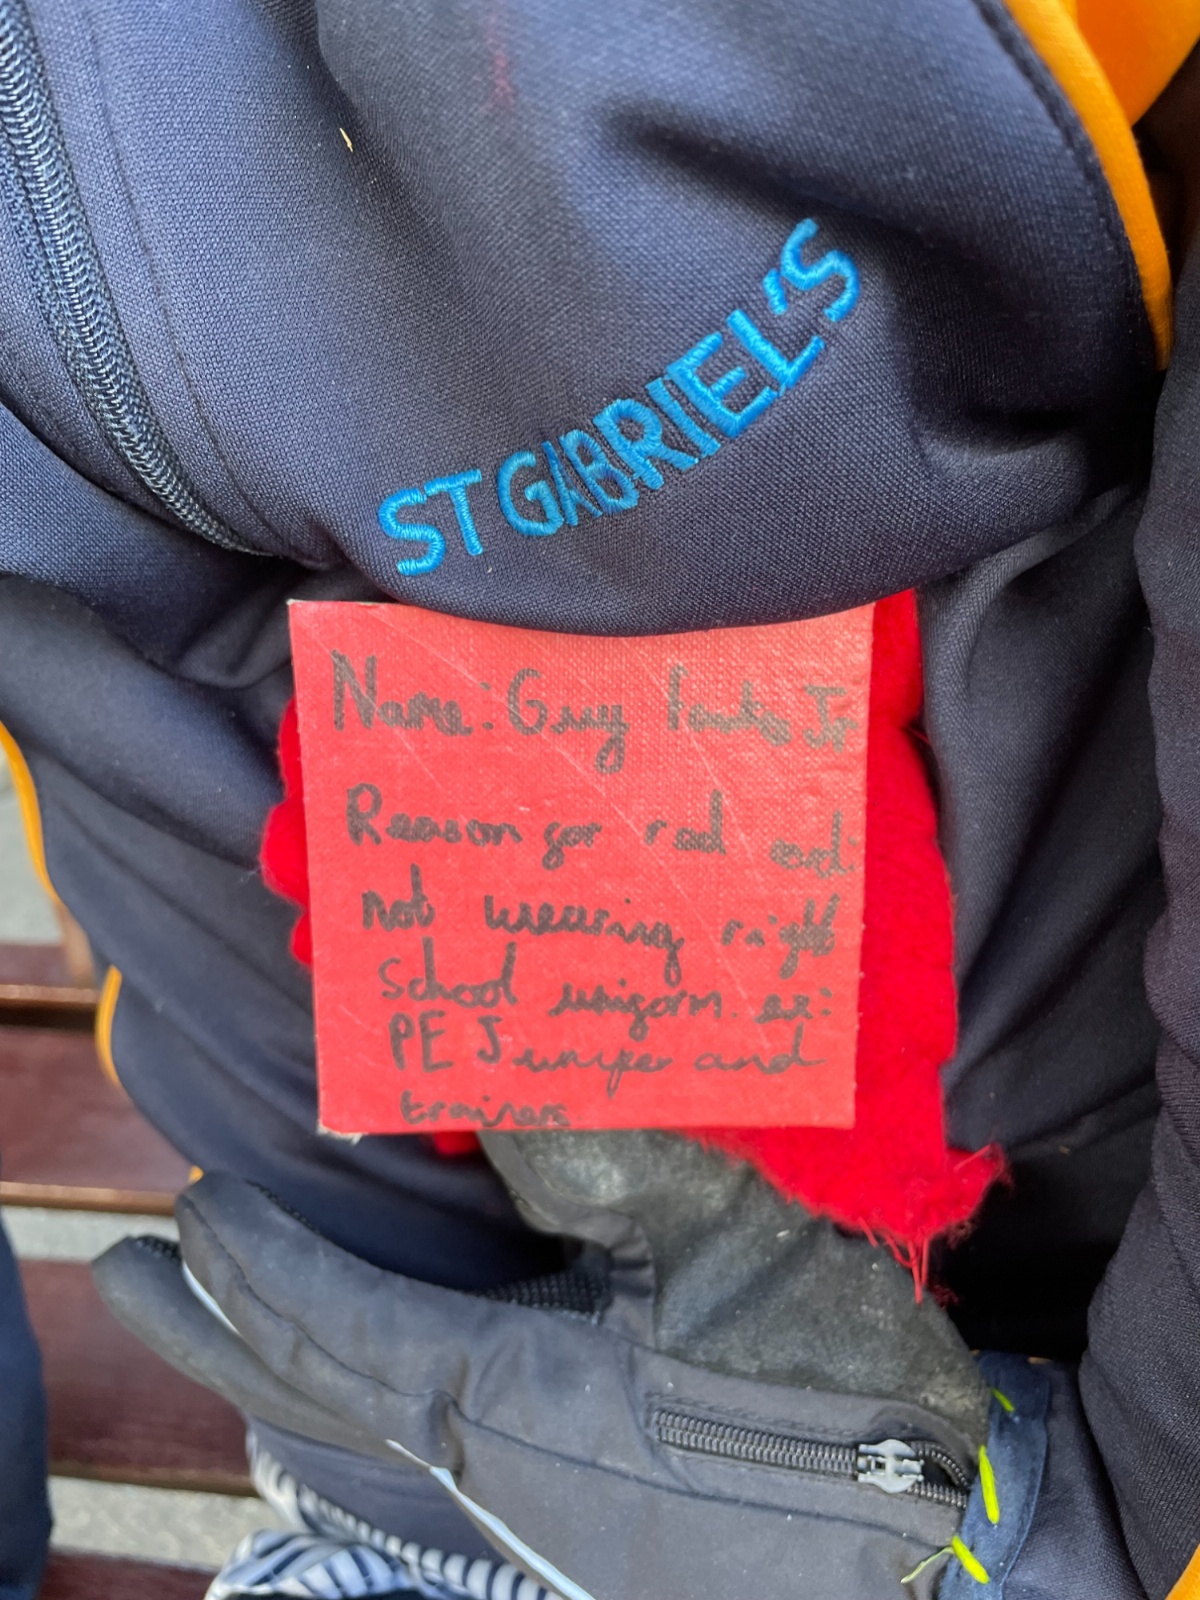 ST GABRIEL'S
Name: Guy Fawks Jr
Reason for red card:
not wearing right
School uniform. ex:
PE Jumper and
trainers